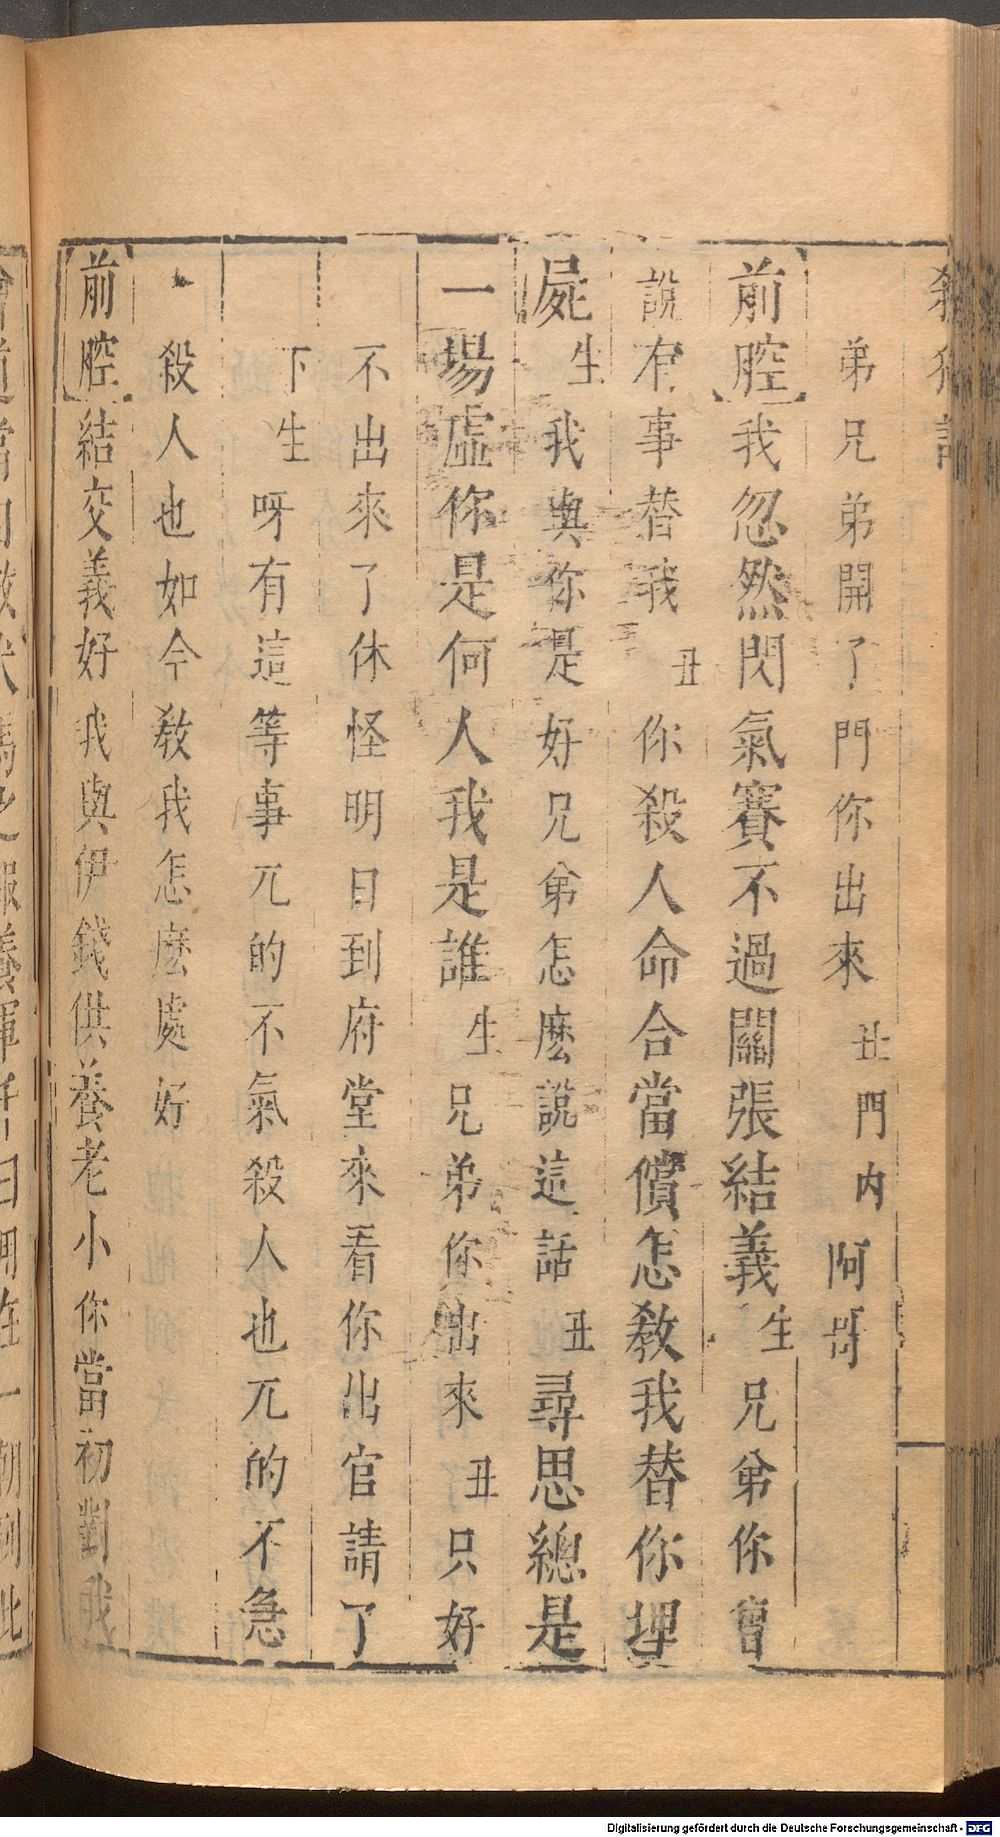 殺狗記
弟兄弟開了門你出來丑門内阿哥
前腔我忽然閃氣賽不過關張結義生兄弟你曾
說有事替我丑你殺人命合當償怎教我替你埋
屍生我與你是好兄弟怎麽說這話丑尋思總是
一場虛你是何人我是誰生兄弟你出來丑只好
不出來了休怪明日到府堂來看你出官請了
下生呀有這等事兀的不氣殺人也兀的不急
殺人也如今教我怎麽處好
前腔結交義好我與伊錢供養老小你當初對我
Digitalisierung gefördert durch die Deutsche Forschungsgemeinschaft - DFG